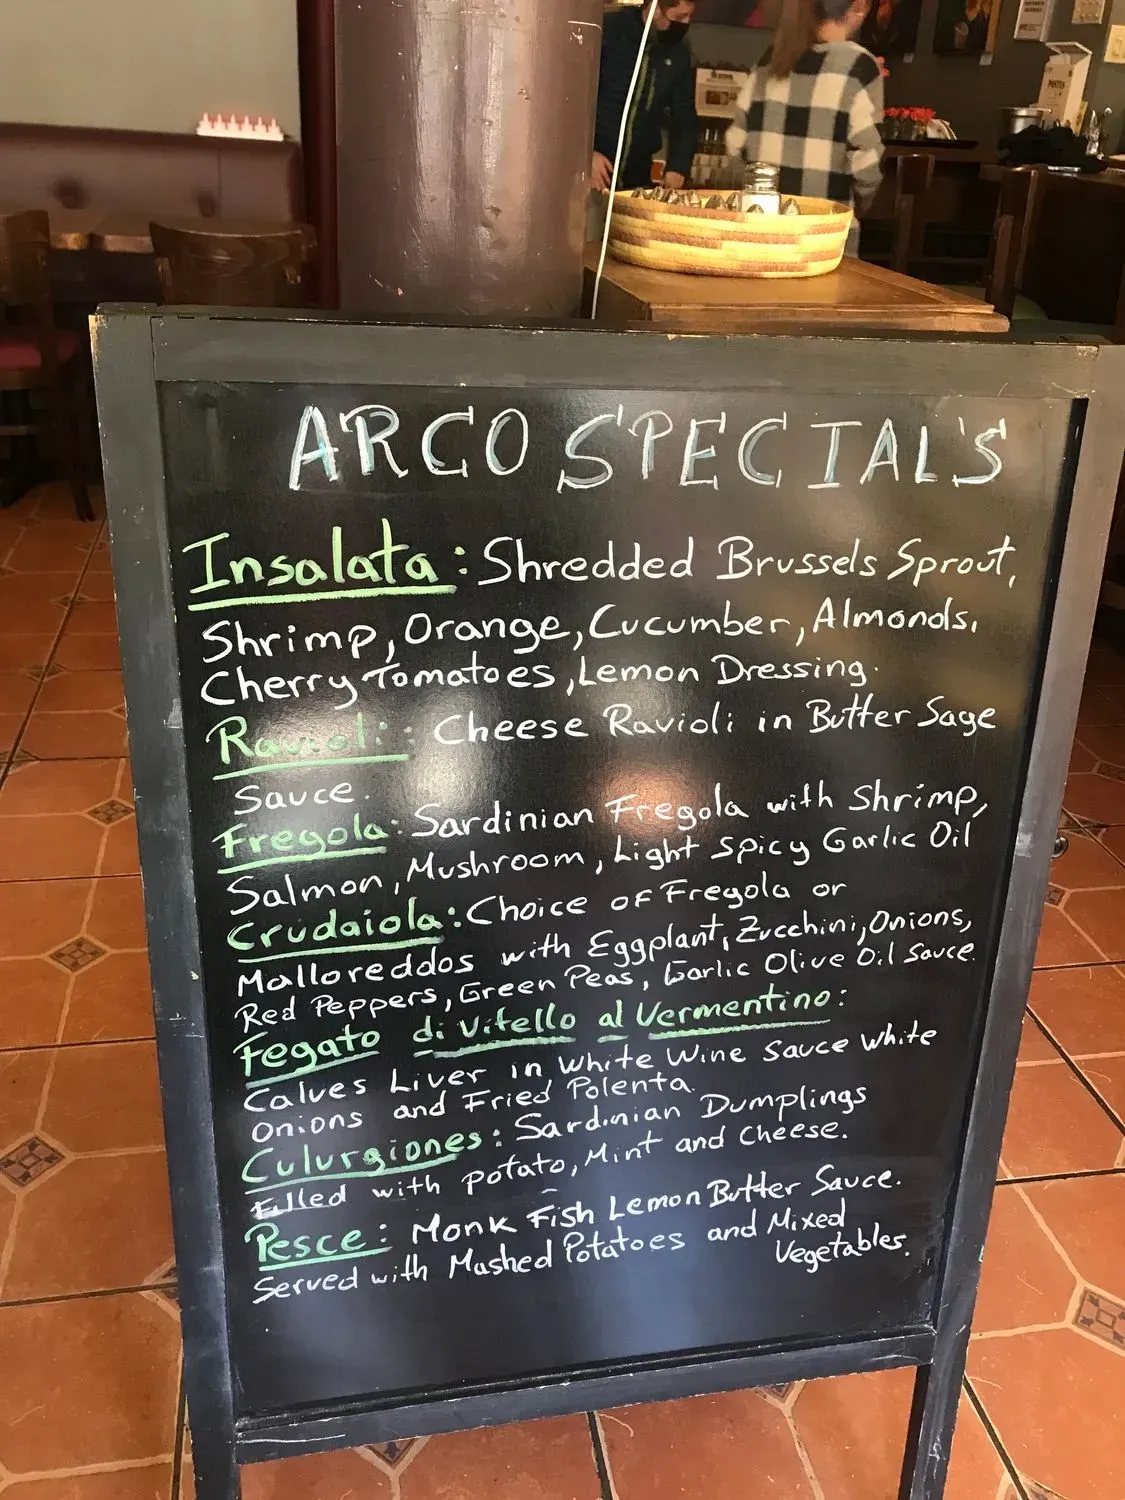 ARCO SPECIAL'S
Insalata: Shredded Brussels Sprout,
Shrimp, Orange, Cucumber, Almonds,
Cherry Tomatoes, Lemon Dressing.
Ravioli: Cheese Ravioli in Butter Sage
Sauce.
Fregola: Sardinian Fregola with Shrimp,
Salmon, Mushroom, Light Spicy Garlic Oil
Crudaiola: Choice of Fregola or
Malloreddos with Eggplant, Zucchini, Onions,
Red Peppers, Green Peas, Garlic Olive Oil Sauce.
Fegato di Vitello al Vermentino:
Calves Liver in White Wine Sauce White
Onions and Fried Polenta.
Culurgiones: Sardinian Dumplings
Filled with Potato, Mint and Cheese.
Pesce: Monk Fish Lemon Butter Sauce.
Served with Mashed Potatoes and Mixed
Vegetables.